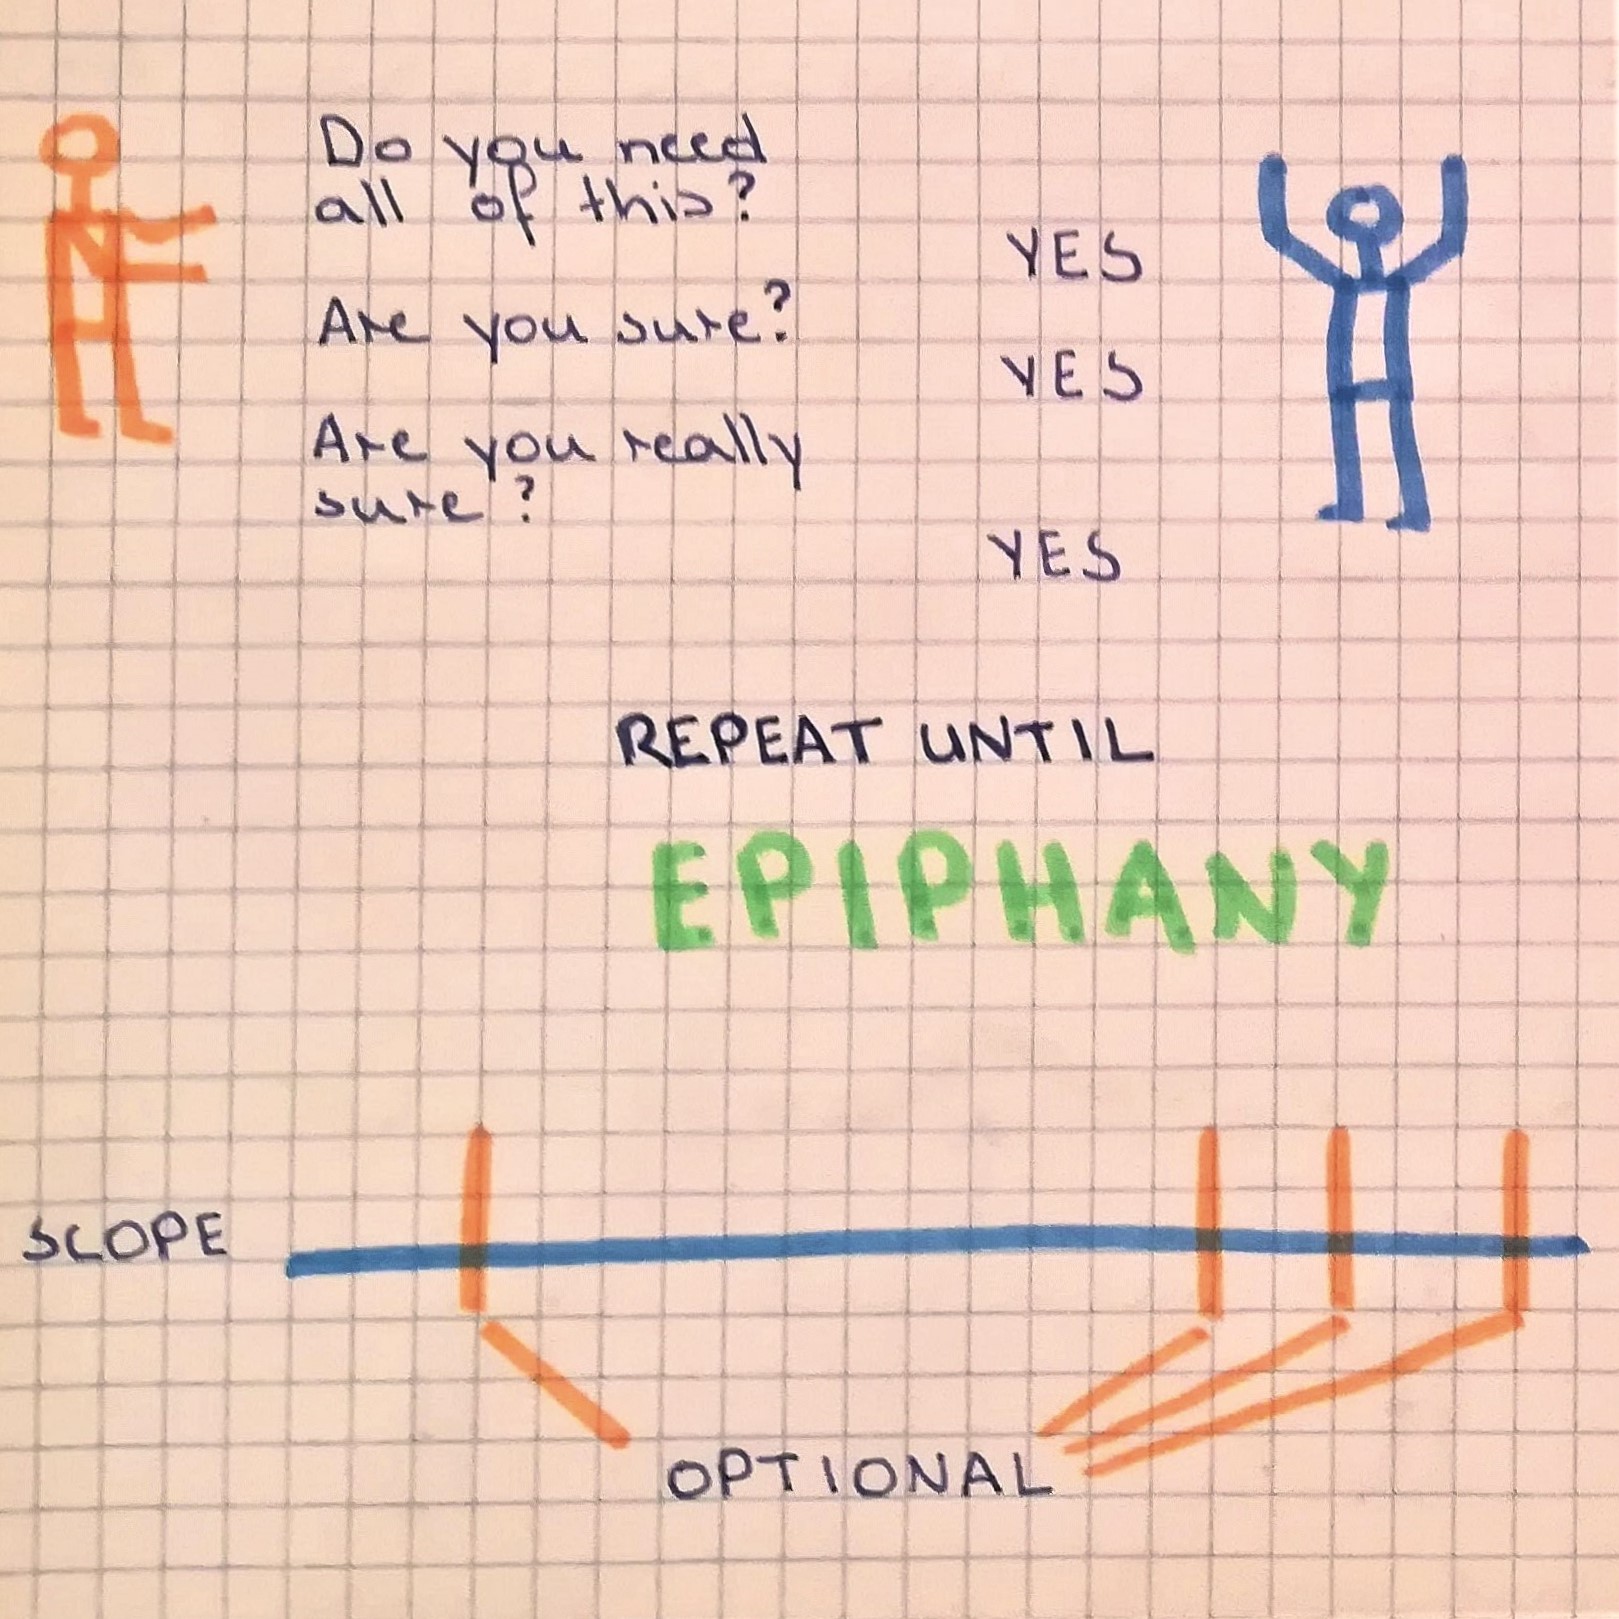 Do you need
all of this?
YES
Are you sure?
YES
Are you really
sure?
YES
REPEAT UNTIL
EPIPHANY
SCOPE
OPTIONAL